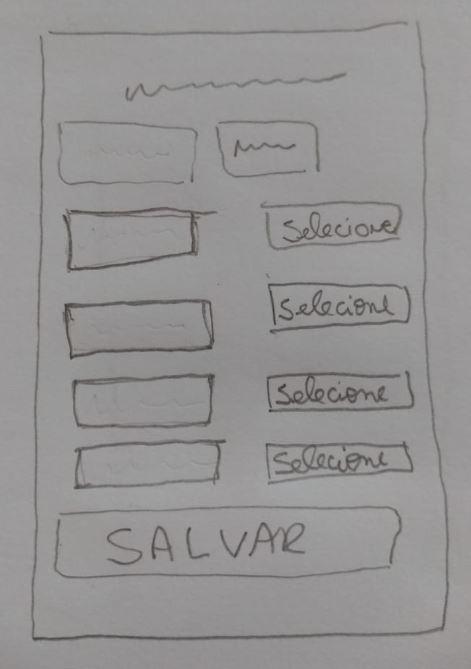 Selecione
Selecione
Selecione
Selecione
SALVAR